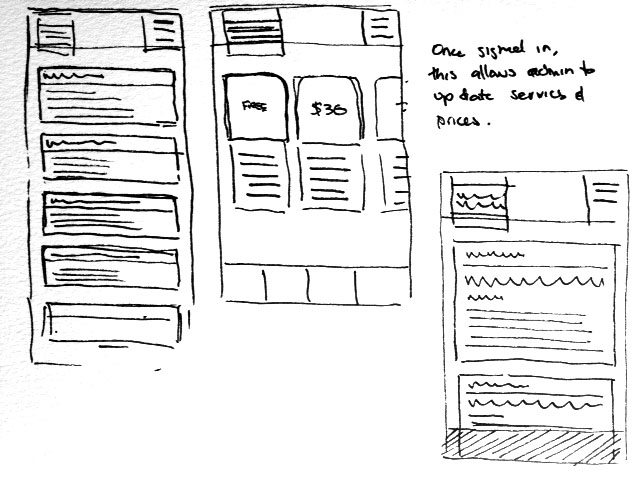 FREE
$36
Once signed in,
this allows admin to
update services &
prices.